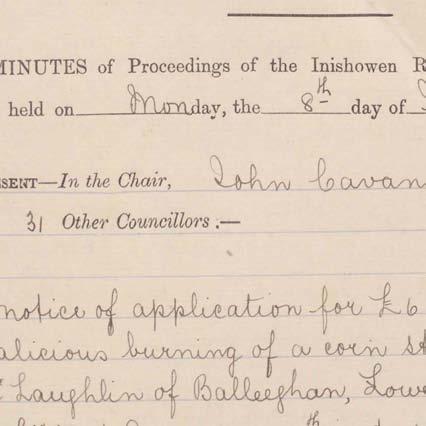 MINUTES of Proceedings of the Inishowen R
held on Monday, the 8th day of
SENT—In the Chair, John Cavan
31 Other Councillors :—
notice of application for £6
alicious burning of a corn st
Laughlin of Balleeghan, Lowe